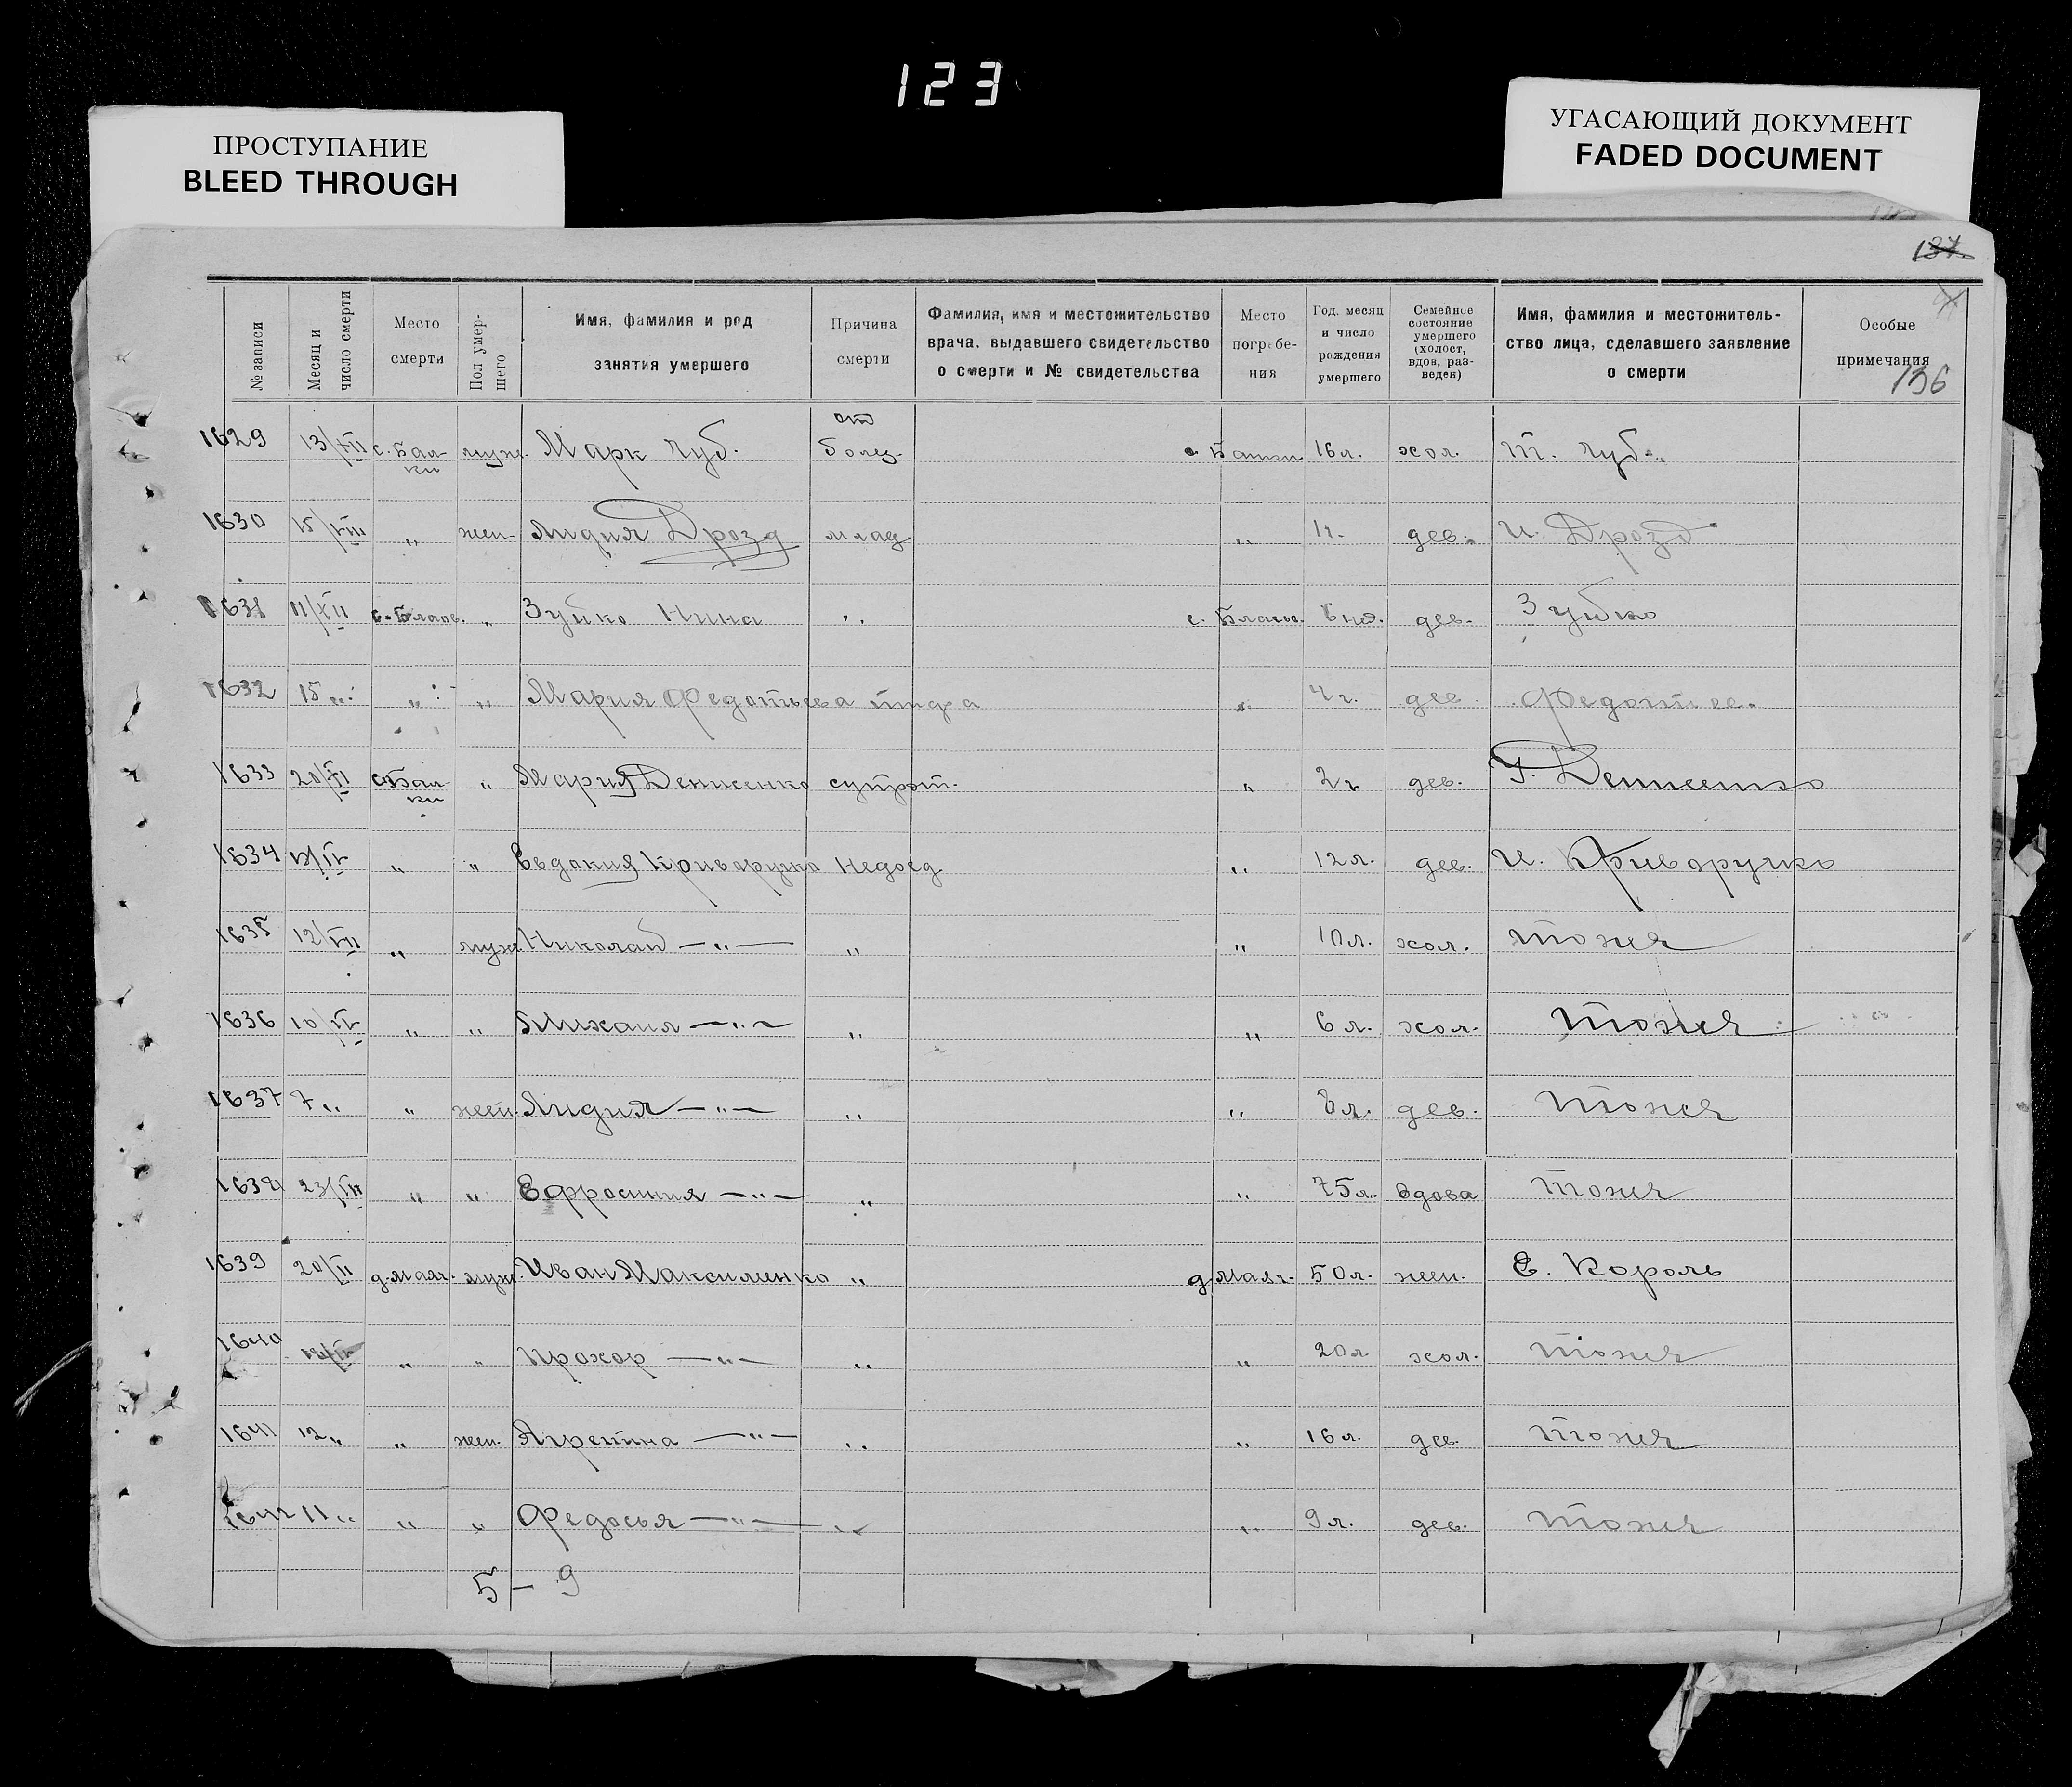 123
ПРОСТУПАНИЕ
BLEED THROUGH
УГАСАЮЩИЙ ДОКУМЕНТ
FADED DOCUMENT
137
№ записи | Месяц и число смерти | Место смерти | Пол умер-шего | Имя, фамилия и род занятия умершего | Причина смерти | Фамилия, имя и местожительство врача, выдавшего свидетельство о смерти и № свидетельства | Место погребе-ния | Год, месяц и число рождения умершего | Семейное состояние умершего (холост, вдов, раз-веден) | Имя, фамилия и местожитель-ство лица, сделавшего заявление о смерти | Особые примечания
136
1629 13/XII с. Бал-ки муж. Марк Чуб. от болез. с. Балки 16 л. хол. Т. Чуб.
1630 15/VIII „ жен. Лидия Дрозд млад „ 1 г. дев. И. Дрозд
1631 11/XII с. Благов. „ Зубко Нина „ с. Благов. дев. Зубко
1632 15 „ „ „ Мария Федотьева „ 4 г. дев. Федотьев.
1633 20/XI с. Бал-ки „ Мария Денисенко „ 2 г. дев. Г. Денисенко
1634 „ „ Евдокия Криворучко Недоед „ 12 л. дев. И. Криворучко
1635 12/VII „ муж. Николай —„— „ „ 10 л. хол. тоже
1636 „ „ Михаил —„— „ „ 6 л. хол. тоже
1637 7 „ „ жен. Лидия —„— „ „ 8 л. дев. тоже
1638 23/VIII „ „ Ефросиния —„— „ „ 75 л. вдова тоже
1639 20/II д. Маяч. муж. Иван Максименко „ д. Маяч. 50 л. жен. Е. Король
1640 „ „ Прохор —„— „ „ 20 л. хол. тоже
1641 12 „ „ жен. Агрепина —„— „ „ 16 л. дев. тоже
1642 11 „ „ „ Федосья —„— „ „ 9 л. дев. тоже
5 – 9